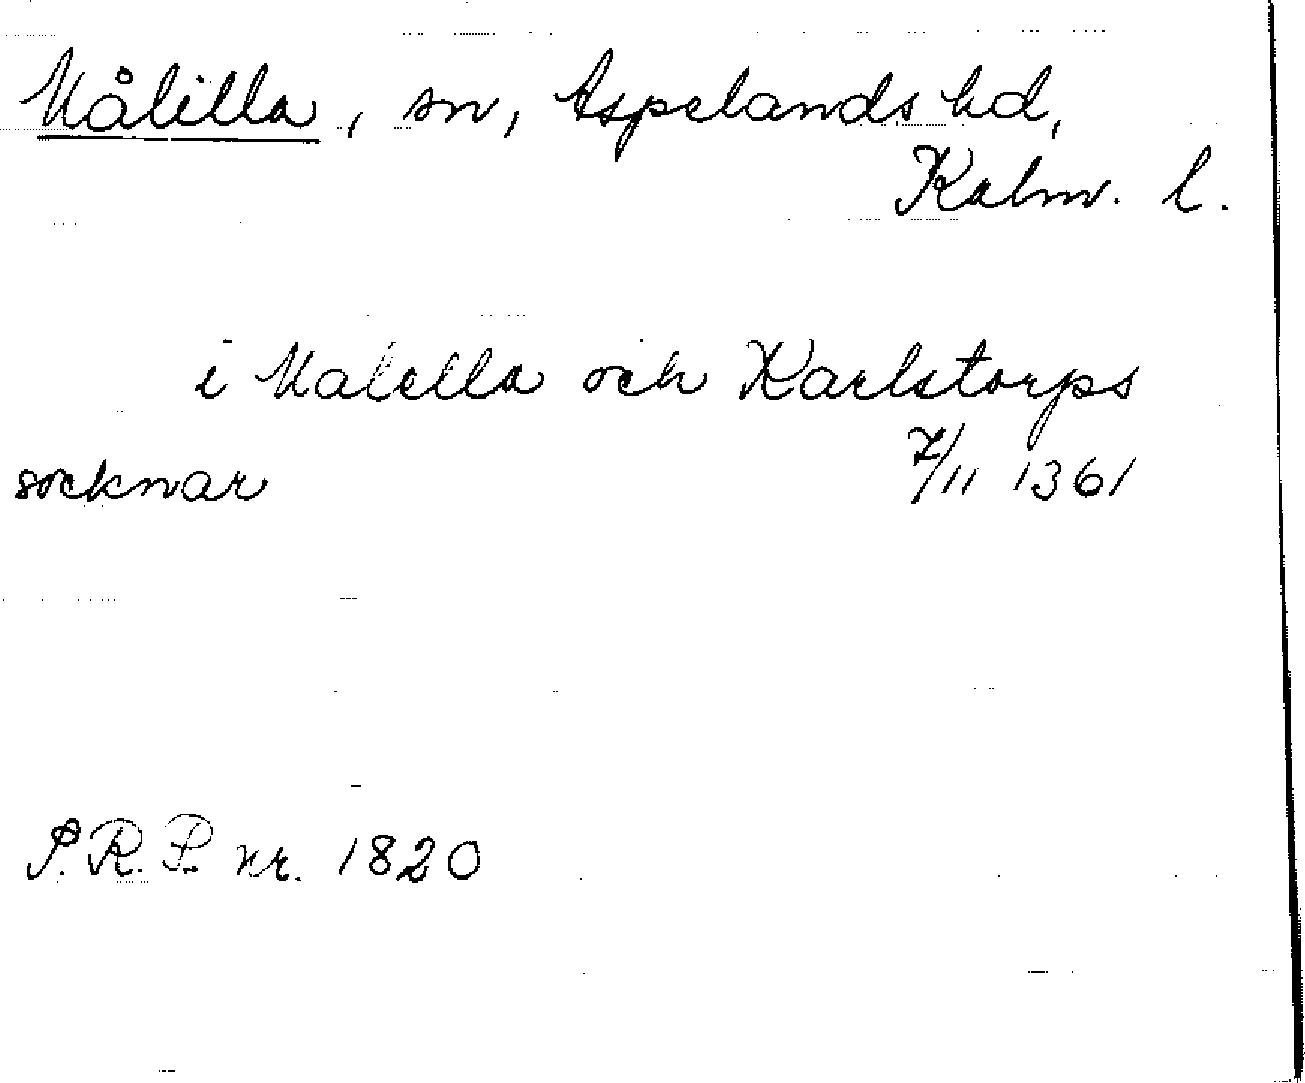 Målilla, sn, Aspelands hd,
Kalm. l.
i Malella och Karlstorps
socknar 7/11 1361
S.R.P. nr. 1820